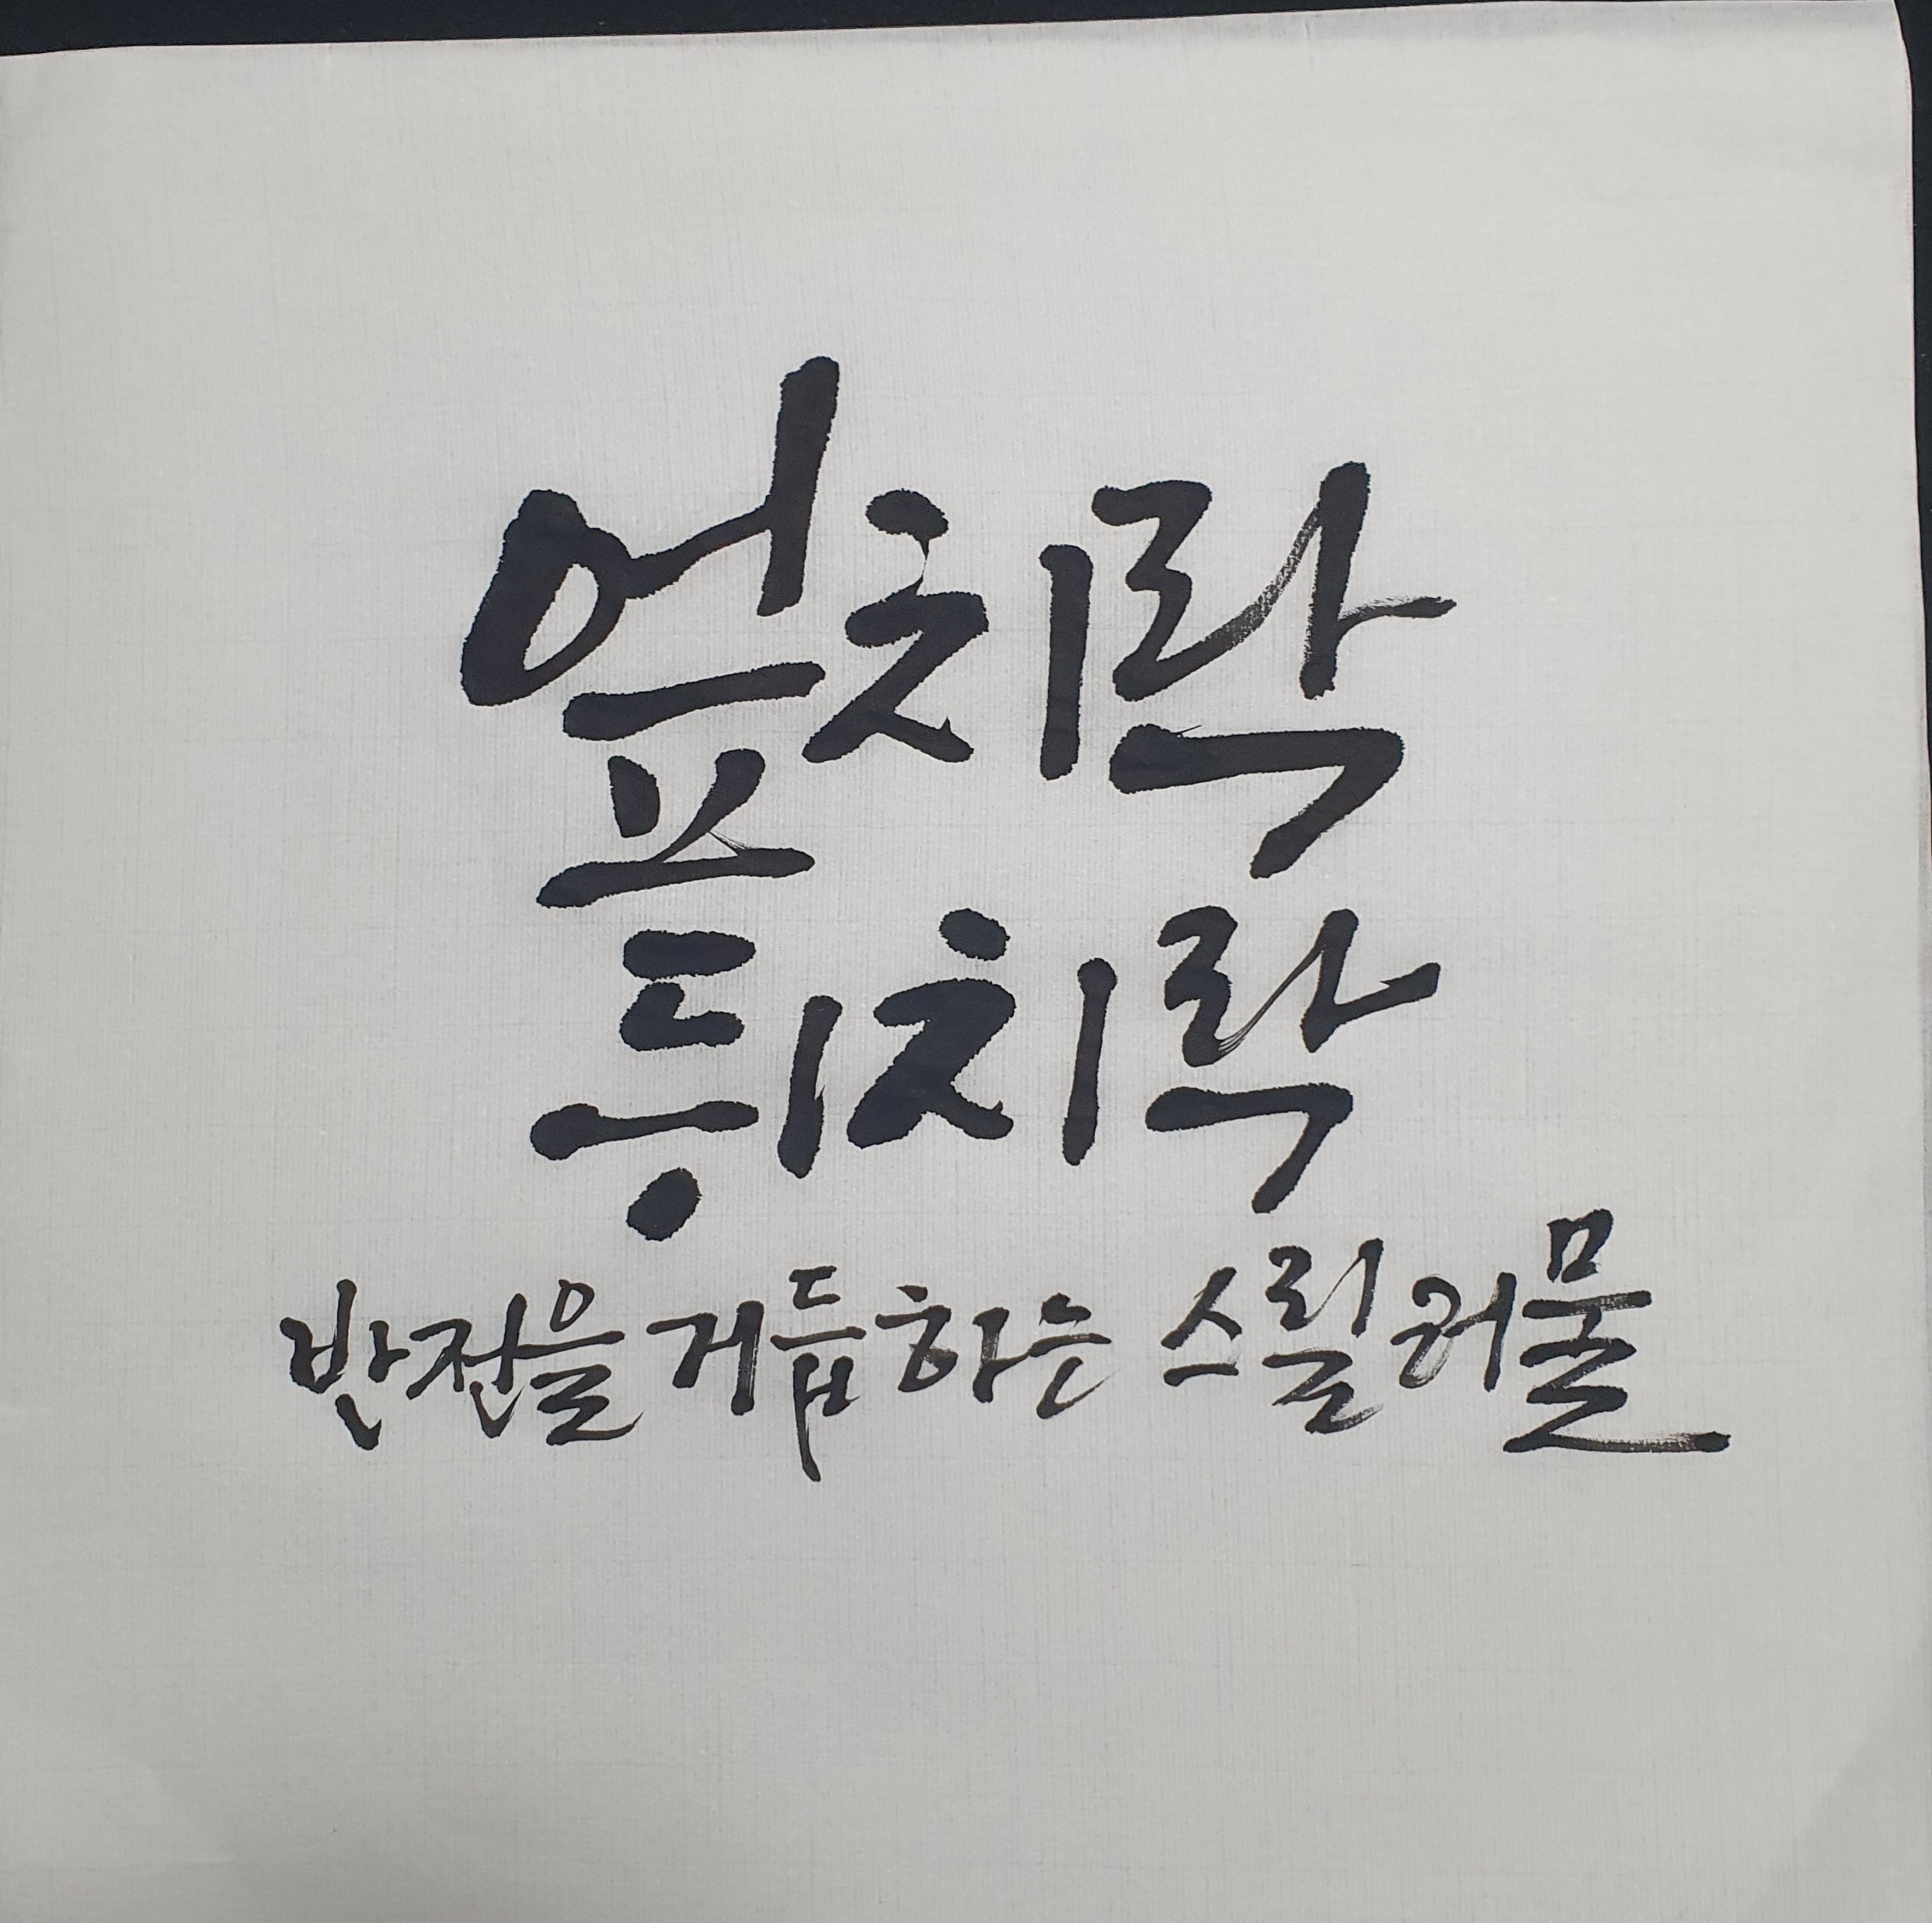 엎치락
뒤치락
반전을 거듭하는 스릴러물